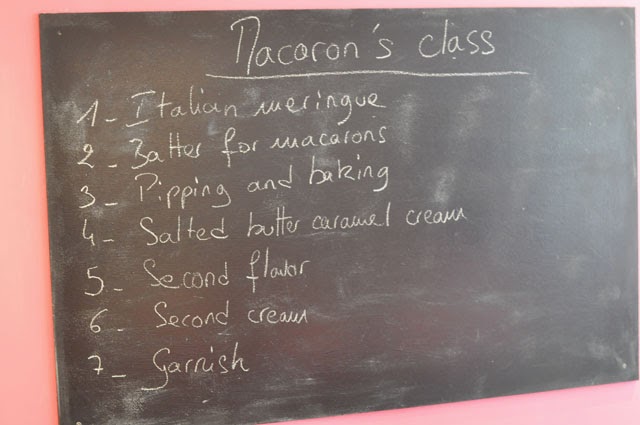 Macaron's class
1- Italian meringue
2- Batter for macarons
3- Pipping and baking
4- Salted butter caramel cream
5- Second flavor
6- Second cream
7- Garnish